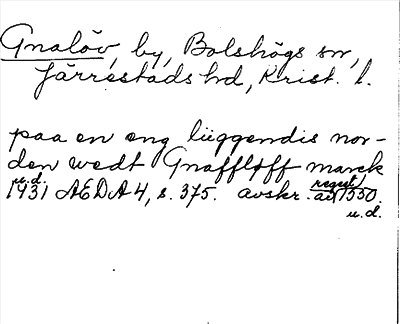 Gnalöv, by, Bolshögs sn,
Järrestads hd, Krist. l.
paa en eng liiggendis nor-
den wedt Gnaffløff marck
u.d.
1431 AEDA 4, s. 375. avskr. av 1550.
regest
u.d.